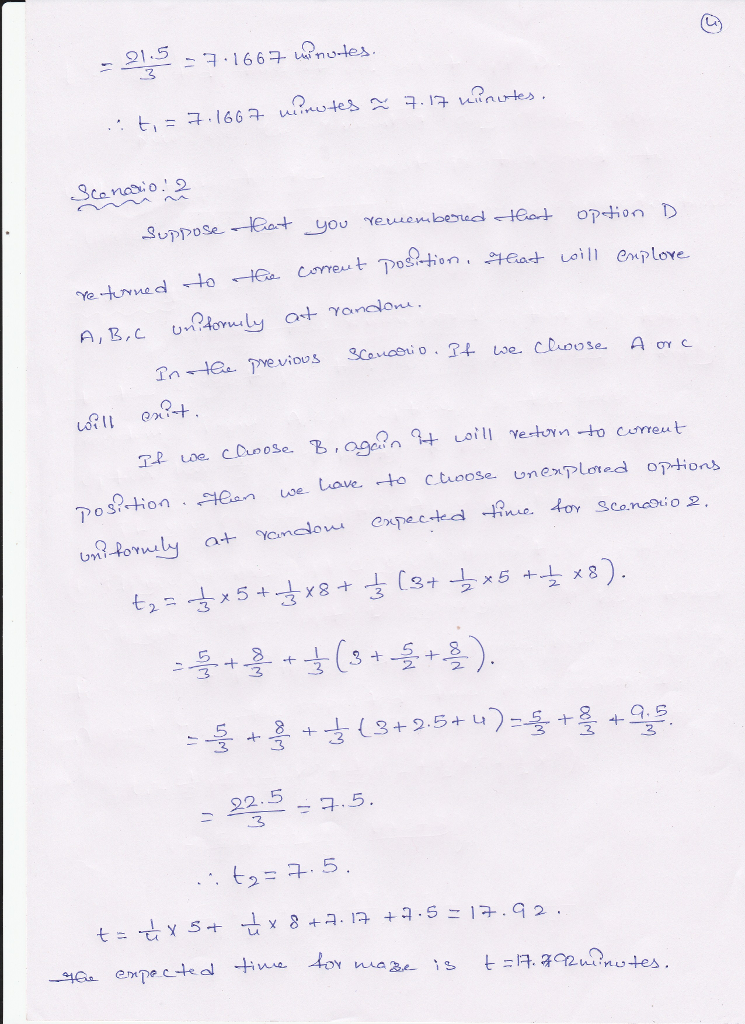 4
= 21.5/3 = 7.1667 minutes.
∴ t₁ = 7.1667 minutes ≅ 7.17 minutes.
Scenario: 2
Suppose that you remembered that option D
returned to the current position. That will explore
A, B, C uniformly at random.
In the previous scenario. If we choose A or C
will exit.
If we choose B, again it will return to current
position. Then we have to choose unexplored options
uniformly at random expected time for scenario 2.
t₂ = 1/3 × 5 + 1/3 × 8 + 1/3 (3 + 1/2 × 5 + 1/2 × 8).
= 5/3 + 8/3 + 1/3 (3 + 5/2 + 8/2).
= 5/3 + 8/3 + 1/3 (3 + 2.5 + 4) = 5/3 + 8/3 + 9.5/3.
= 22.5/3 = 7.5.
∴ t₂ = 7.5.
t = 1/4 × 5 + 1/4 × 8 + 7.17 + 7.5 = 17.92.
The expected time for maze is t = 17.92 minutes.